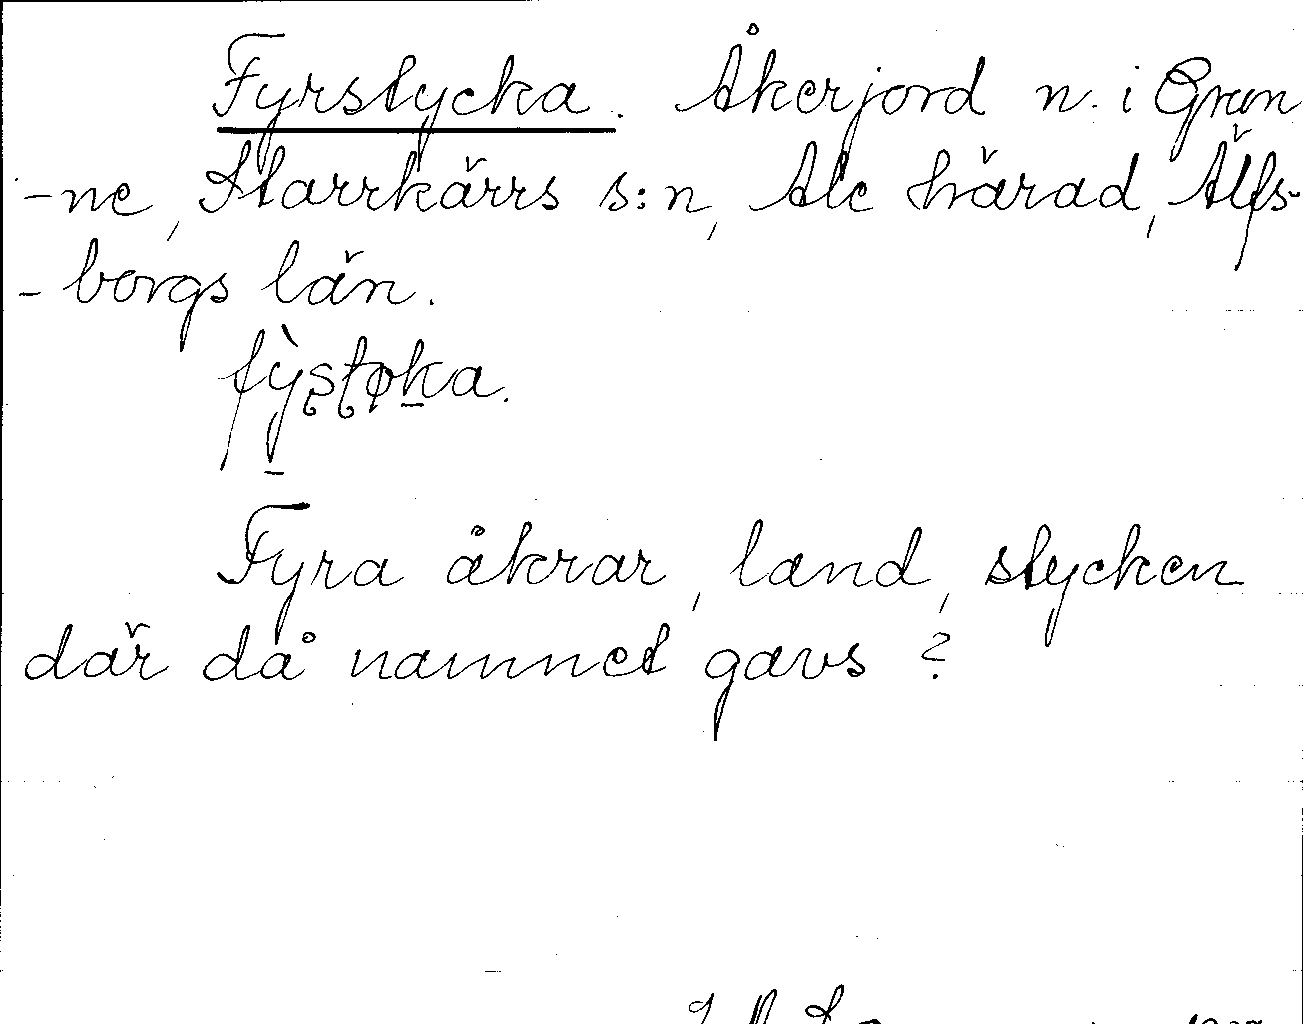 Fyrstycka. Åkerjord n. i Gran
-ne, Starrkärrs s:n, Ale härad, Älfs-
- borgs län.
fỳstøka.
Fyra åkrar, land, stycken
där då namnet gavs?